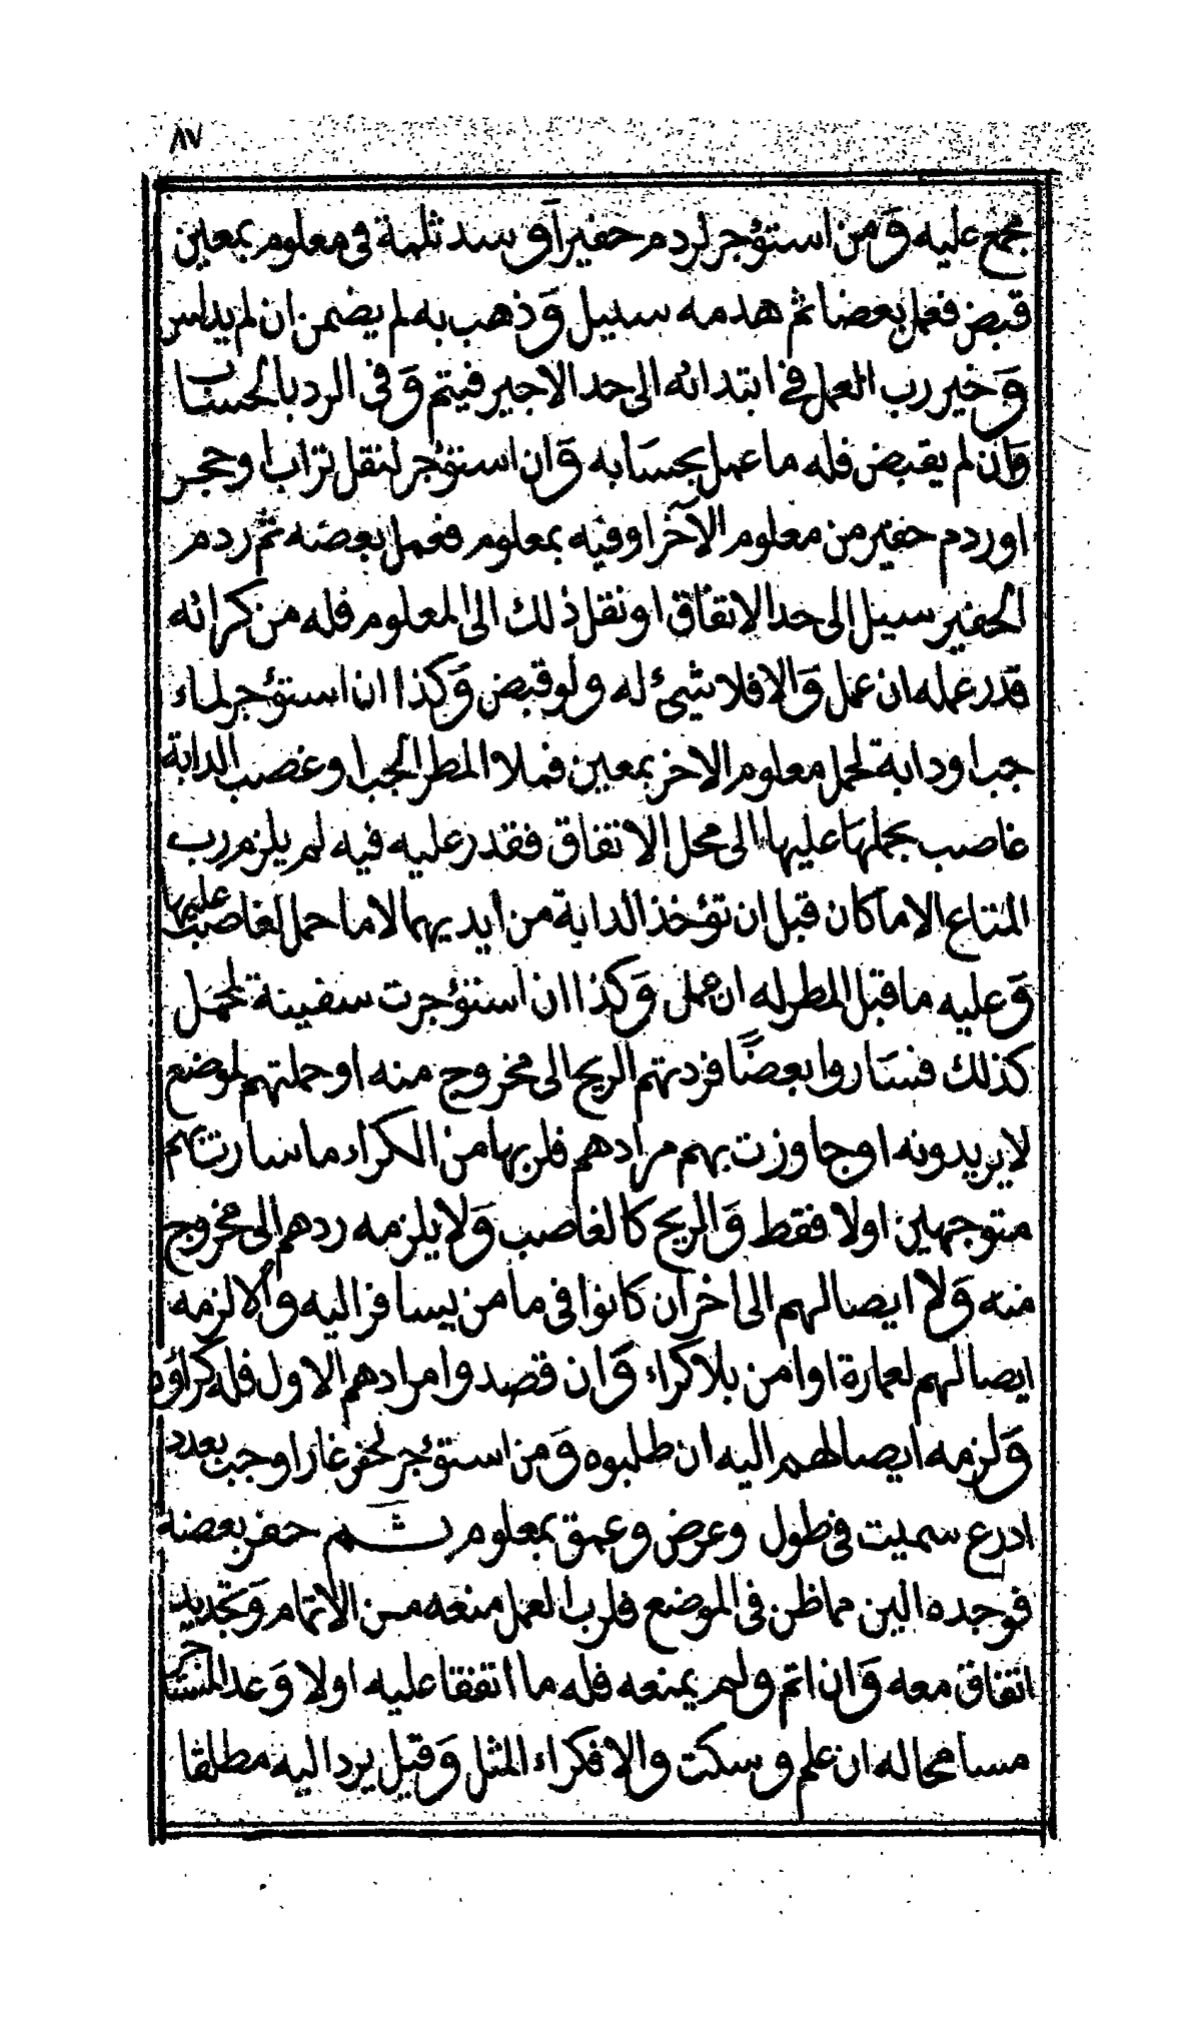 ٨٧
مجمع عليه وَمن استؤجر لردم حفير أَو سد ثلمة في معلوم بمعين
قبض فعمل بعضا ثم هدمه سيل وَذهب به لم يضمن ان لم يدلس
وَخير رب العمل في ابتدائه الى حد الاجير فيتم وَفي الرد بالحساب
وَان لم يقبض فله ما عمل بحسَابه وَان استؤجر لنقل تراب او حجر
او ردم حفير من معلوم الآخر او فيه بمعلوم فعمل بعضه ثم ردم
الحفير سيل الى حد الاتفاق او نقل ذلك الى المعلوم فله من كرائه
قدر عمله ان عمل وَالا فلا شيئ له ولو قبض وَكذا ان استؤجر لماء
جب او دابة لحمل معلوم الاخر بمعين فملا المطر الجب او غصب الدابة
غاصب بحملهَا عليها الى محل الاتفاق فقدر عليه فيه لم يلزم رب
المتاع الا ما كان قبل ان تؤخذ الدابة من ايديهما لا ما حمل الغاصب عليها
وَعليه ما قبل المطر له ان عمل وَكذا ان استؤجرت سفينة لحمل
كذلك فسَاروا بعضًا فردتهم الريح الى مخروج منه او حملتهم لموضع
لا يريدونه او جاوزت بهم مرادهم فلربها من الكراء ما سارت بهم
متوجهين اولا فقط وَالريح كالغاصب وَلا يلزمه ردهم الى مخروج
منه وَلا ايصالهم الى اخر ان كانوا في مامن يسافر اليه والا لزمه
ايصالهم لعمارة او امن بلا كراء وَان قصدوا مرادهم الاول فله كراؤه
وَلزمه ايصالهم اليه ان طلبوه وَمن استؤجر لحفر غار او جب بعدد
ادرع سميت في طول وعرض وعمق بمعلوم ثم حفر بعضه
فوجده الين مما ظن في الموضع فلرب العمل منعه من الاتمام وَتجديد
اتفاق معه وَان اتم ولم يمنعه فله ما اتفقا عليه اولا وَعد المستاجر
مسامحا له ان علم وسكت والا فكراء المثل وَقيل يرد اليه مطلقا